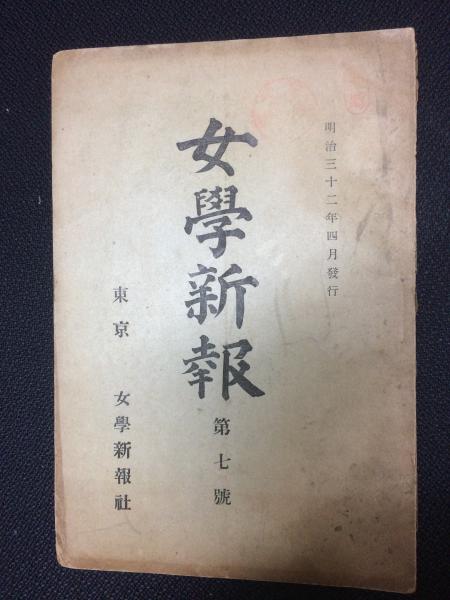 明治三十二年四月發行
女學新報
第七號
東京 女學新報社